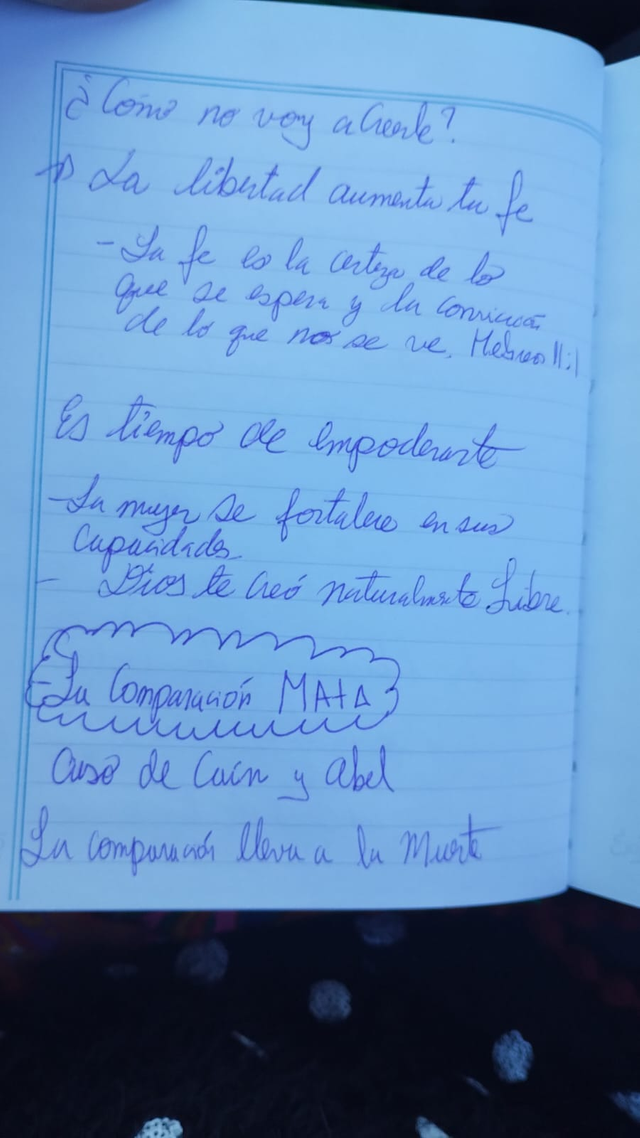 ¿Cómo no voy a Creerle?
→ La libertad aumenta tu fe
- La fe es la certeza de lo
que se espera y la convicción
de lo que no se ve. Hebreos 11:1
Es tiempo de empoderarte
- La mujer se fortalece en sus
Capacidades.
- Dios te creó naturalmente Libre.
- La Comparación MATA
Caso de Caín y Abel
La comparación lleva a la Muerte